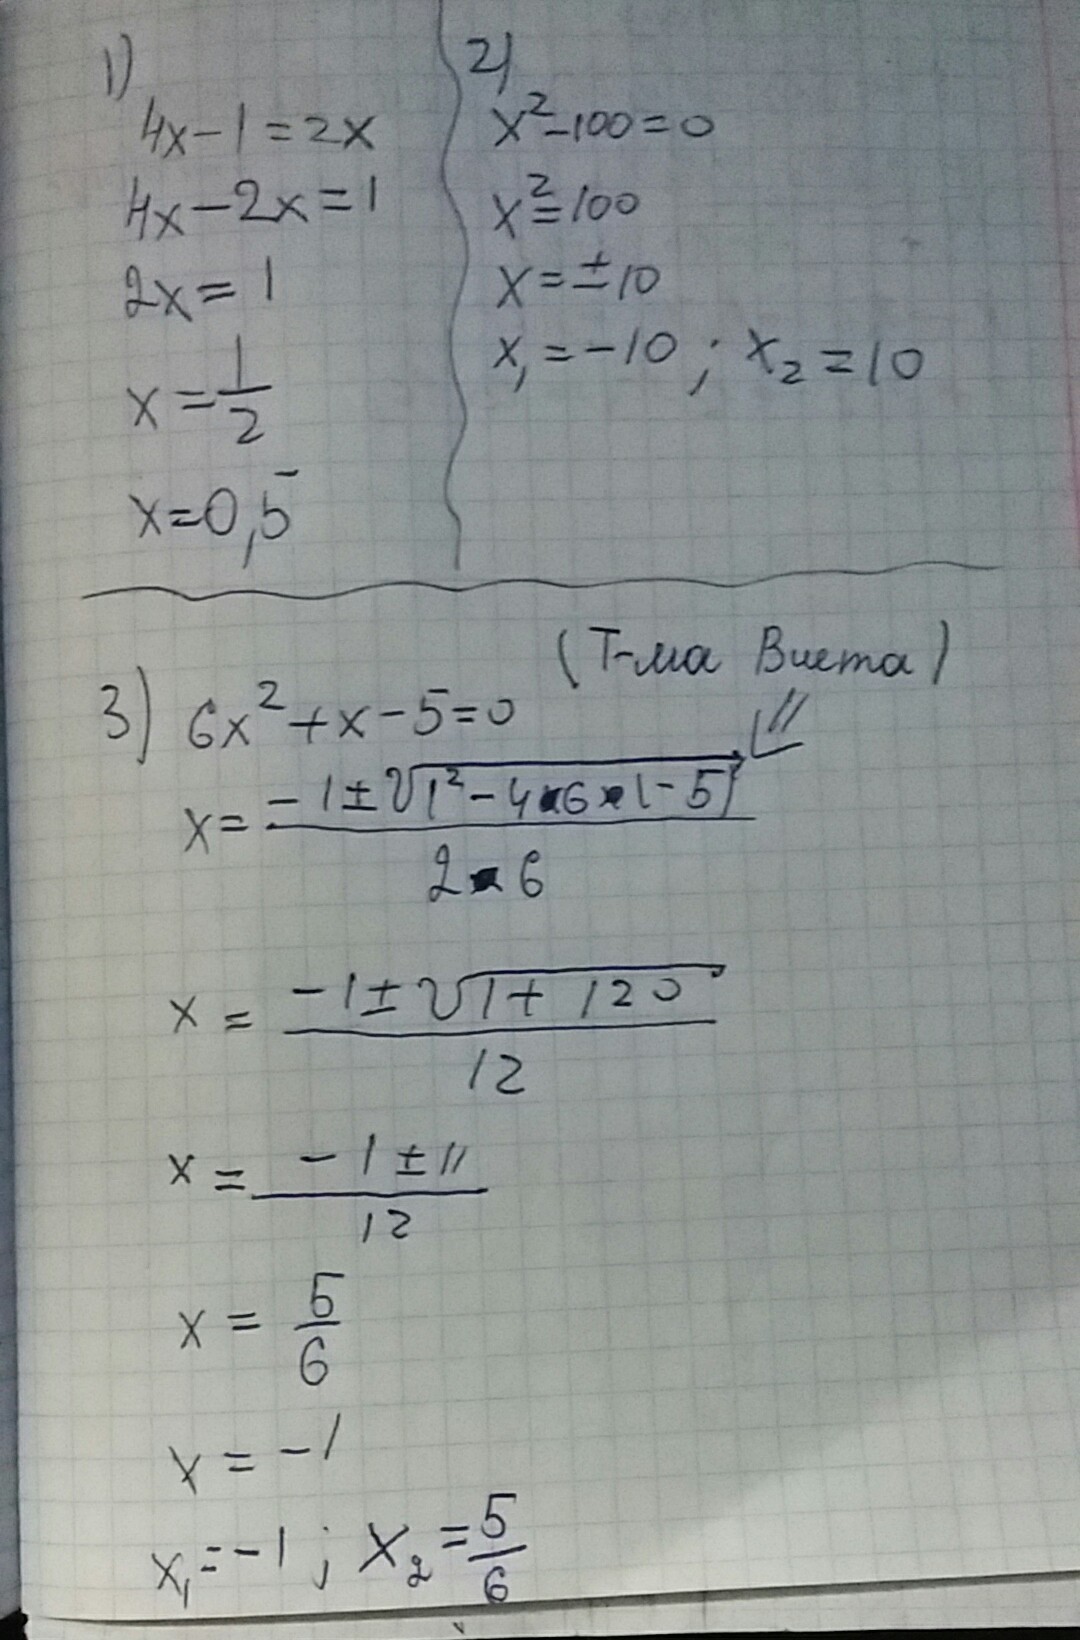 1)
4x-1=2x
4x-2x=1
2x=1
x=1/2
x=0,5
2)
x²-100=0
x²=100
x=±10
x₁=-10; x₂=10
(Т-ма Виета)
3) 6x²+x-5=0
x=(-1±√(1²-4·6·(-5)))/(2·6)
x=(-1±√(1+120))/12
x=(-1±11)/12
x=5/6
x=-1
x₁=-1; x₂=5/6